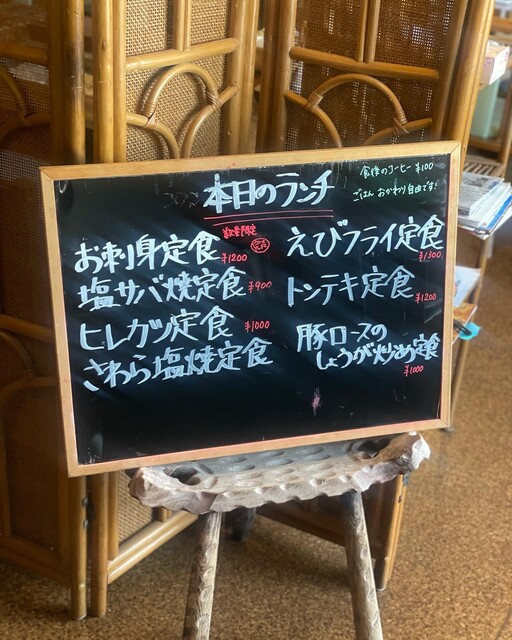 本日のランチ
食後のコーヒー ¥100
ごはん おかわり自由です!
数量限定
お刺身定食 ¥1200
塩サバ焼定食 ¥900
ヒレカツ定食 ¥1000
さわら塩焼定食
えびフライ定食 ¥1300
トンテキ定食 ¥1200
豚ロースの
しょうが炒め定食 ¥1000